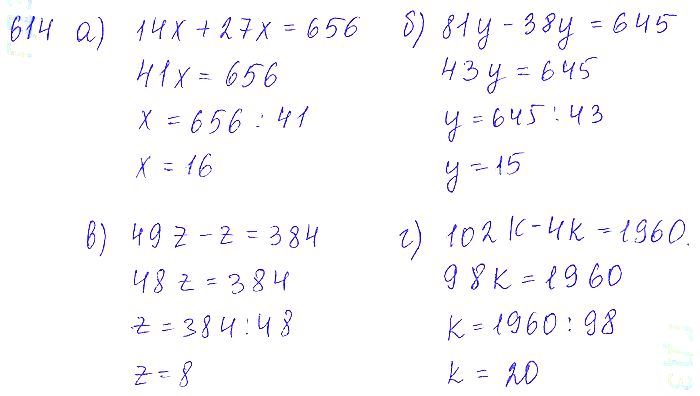 614 а) 14x + 27x = 656
41x = 656
x = 656 : 41
x = 16
б) 81y - 38y = 645
43y = 645
y = 645 : 43
y = 15
в) 49z - z = 384
48z = 384
z = 384 : 48
z = 8
г) 102k - 4k = 1960.
98k = 1960
k = 1960 : 98
k = 20
гдз